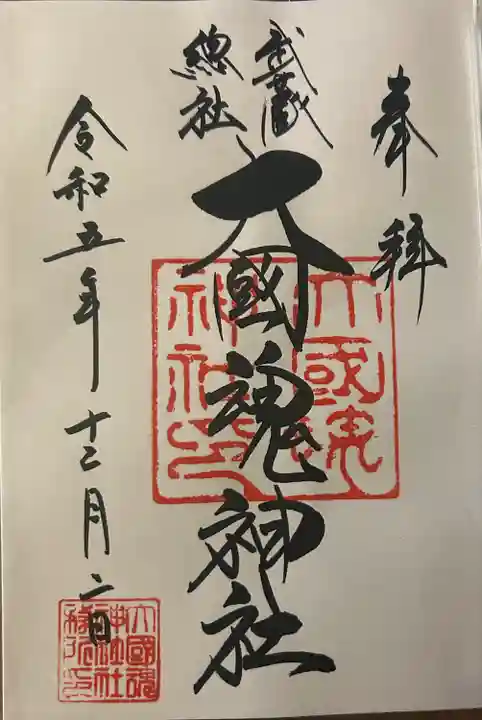 奉拝
武蔵
總社
大國魂神社
令和五年十二月二日
大國魂
神社印
大國魂
神社